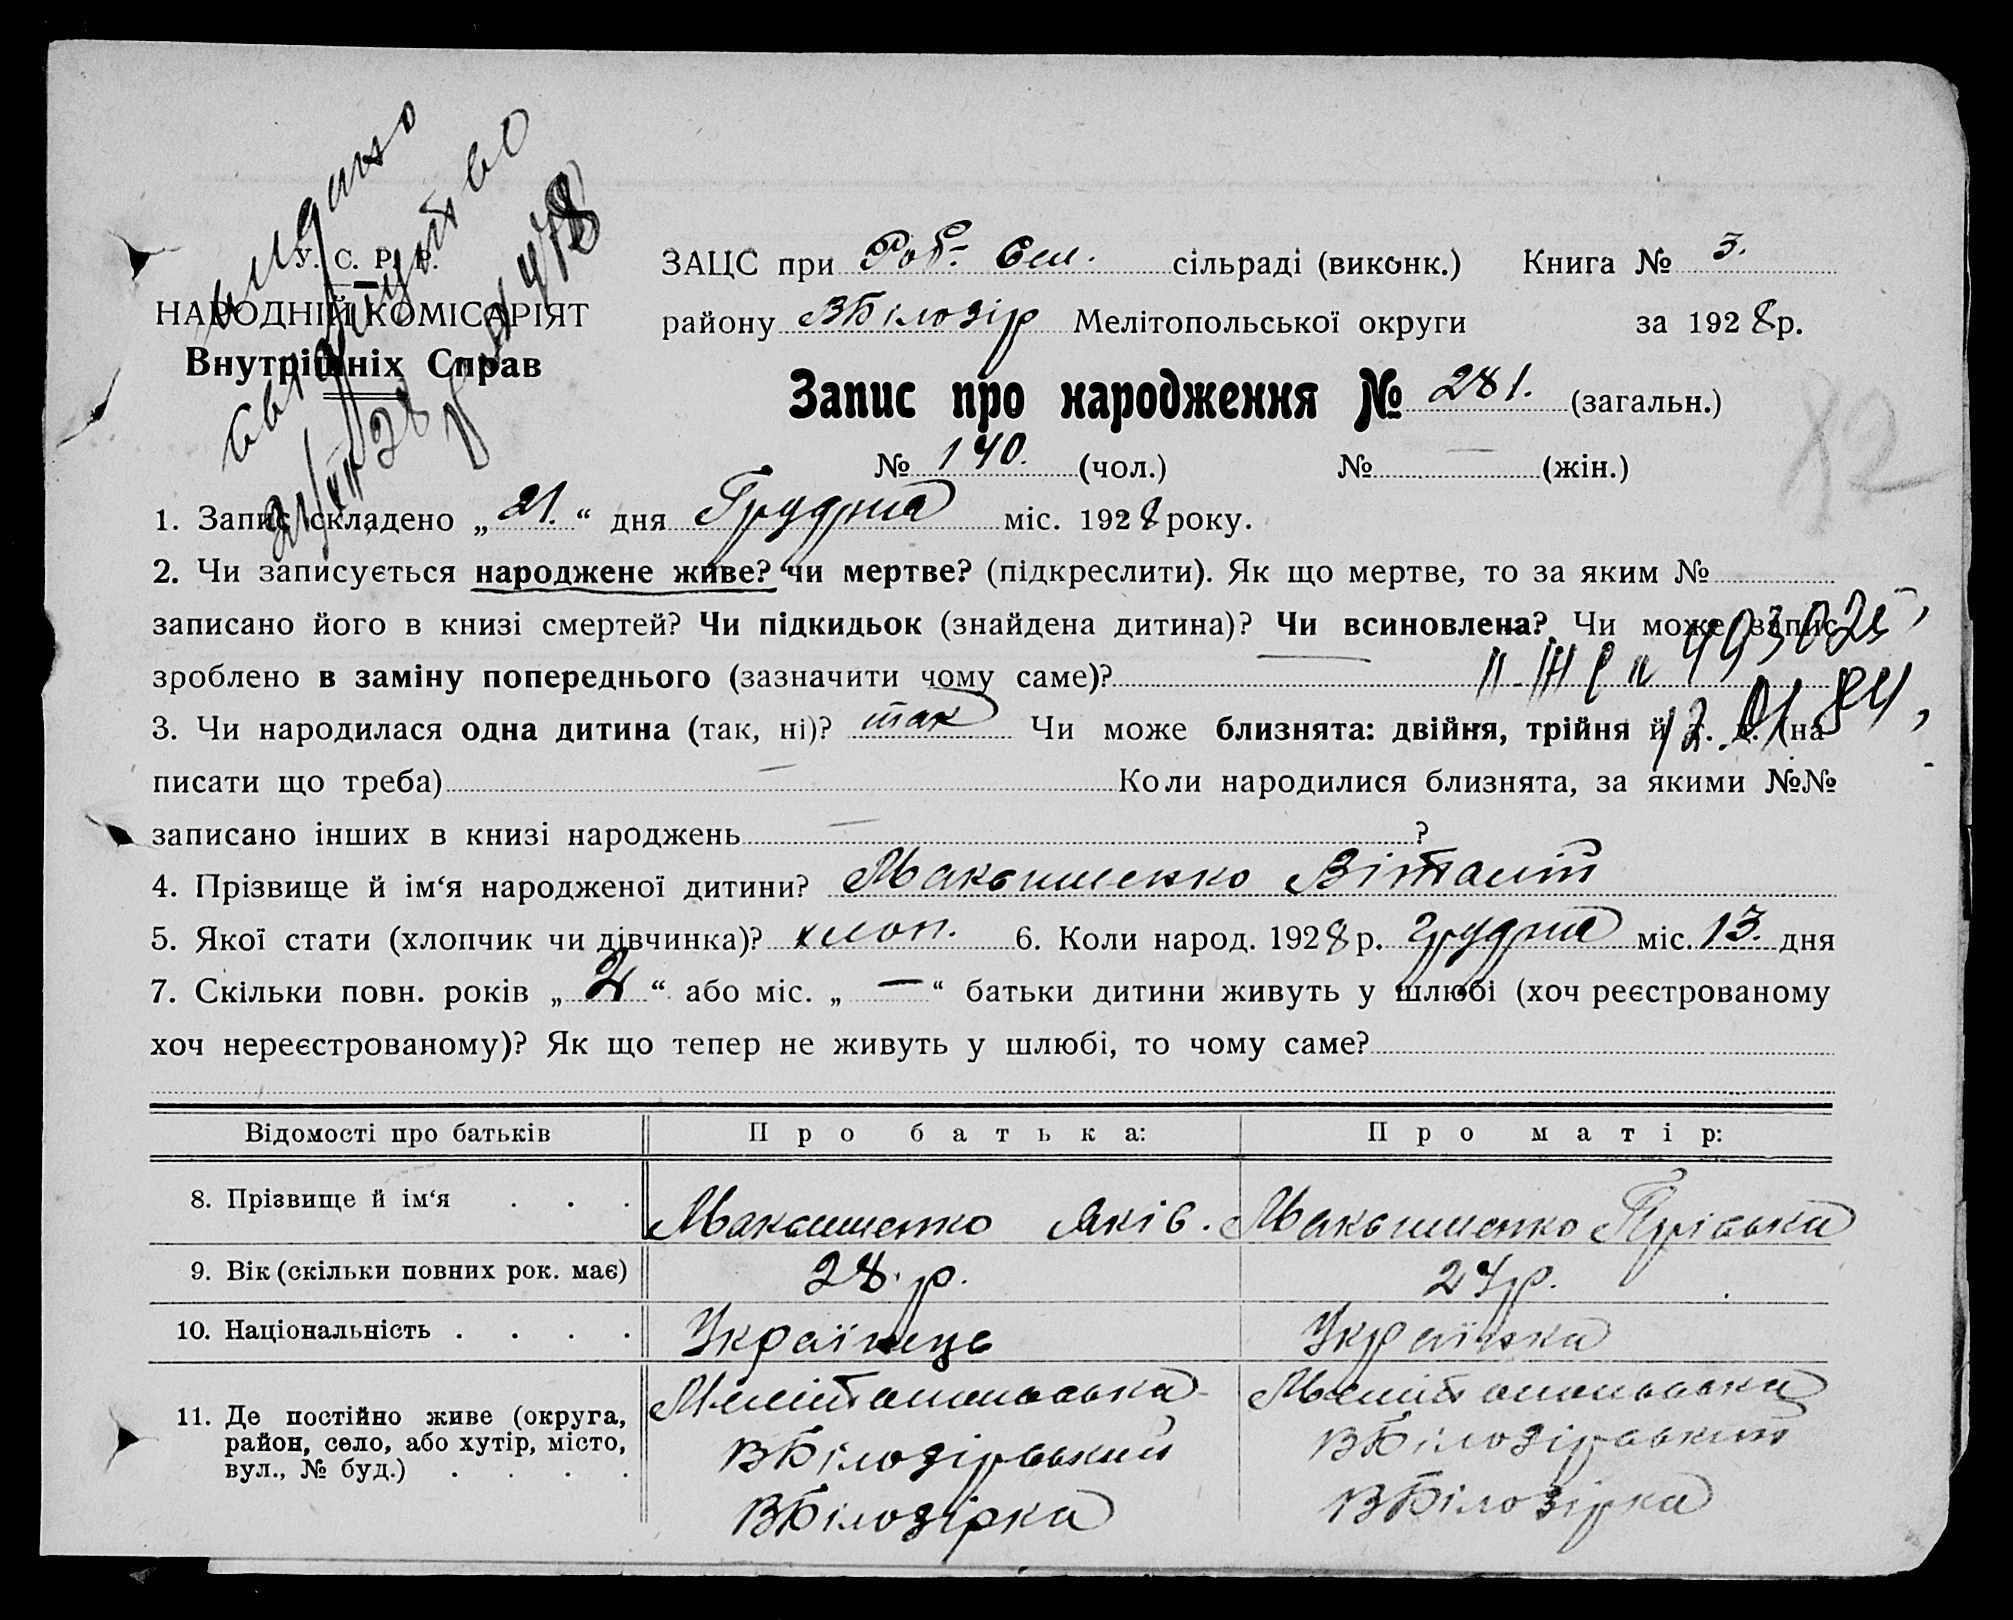 видано
свідоцтво
21/XII 28 № 478
У. С. Р. Р.
НАРОДНІЙ КОМІСАРІЯТ
Внутрішніх Справ
ЗАЦС при Роб. Сел. сільраді (виконк.) Книга № 3.
району ВБілозір Мелітопольської округи за 1928 р.
Запис про народження № 281. (загальн.)
№ 140. (чол.) № — (жін.)
82
1. Запис складено „21.“ дня Грудня міс. 1928 року.
2. Чи записується народжене живе? чи мертве? (підкреслити). Як що мертве, то за яким №
записано його в книзі смертей? Чи підкидьок (знайдена дитина)? Чи всиновлена? Чи може запис
зроблено в заміну попереднього (зазначити чому саме)?
493025
12.01.84,
3. Чи народилася одна дитина (так, ні)? так Чи може близнята: двійня, трійня й т. д. (на
писати що треба) — Коли народилися близнята, за якими №№
записано інших в книзі народжень — ?
4. Прізвище й ім‘я народженої дитини? Макошенко Віталій
5. Якої стати (хлопчик чи дівчинка)? хлоп. 6. Коли народ. 1928 р. грудня міс. 13. дня
7. Скільки повн. років „2“ або міс. „—“ батьки дитини живуть у шлюбі (хоч реєстрованому
хоч нереєстрованому)? Як що тепер не живуть у шлюбі, то чому саме?
Відомості про батьків Про батька: Про матір:
8. Прізвище й ім‘я . . . Макошенко Яків. Макошенко
9. Вік (скільки повних рок. має) 28. р. 27 р.
10. Національність . . . . Українець Українка
11. Де постійно живе (округа, Мелітопольська Мелітопольська
район, село, або хутір, місто, ВБілозірський ВБілозірський
вул., № буд.) . . . . ВБілозірка ВБілозірка